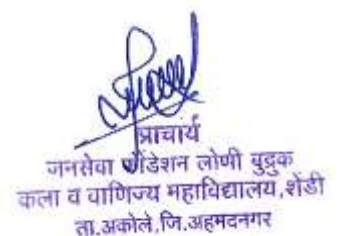 प्राचार्य
जनसेवा फौंडेशन लोणी बुद्रुक
कला व वाणिज्य महाविद्यालय, शेंडी
ता.अकोले, जि.अहमदनगर